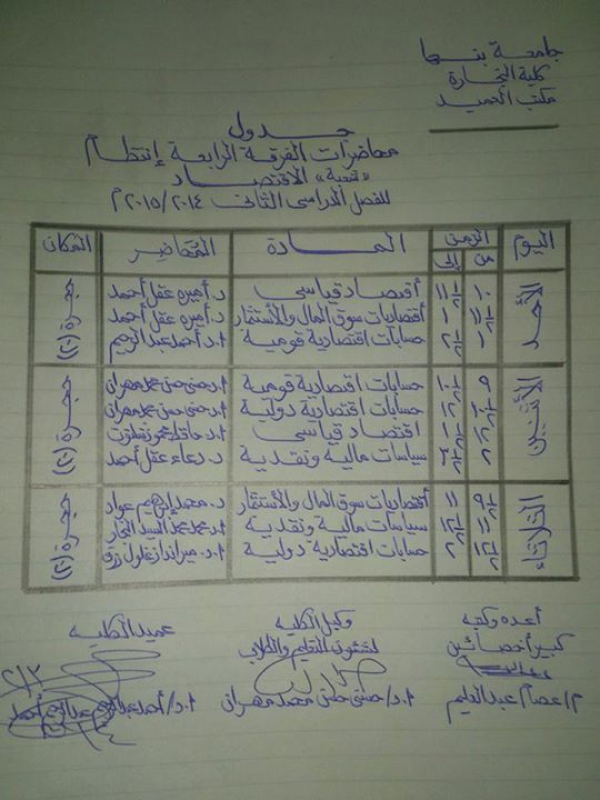 جامعة بنها
كلية التجارة
مكتب العميد
جدول
محاضرات الفرقة الرابعة إنتظام
"شعبة" الاقتصاد
للفصل الدراسى الثانى ٢٠١٥/٢٠١٤م
اليوم الزمن المادة المحاضر المكان
من إلى
الأحد ١٠ ١١½ أقتصاد قياسى د. أميره عقل أحمد حجرة (٢٠)
١١½ ١ أقتصاديات سوق المال والأستثمار د. أميره عقل أحمد
١ ٢½ حسابات اقتصادية قومية أ.د أحمد عبد الرحيم
الأثنين ٩ ١٠½ حسابات اقتصادية قومية أ.د حسنى حسن محمد مهران حجرة (٢٠)
١٠½ ١٢ حسابات اقتصادية دولية أ.د حسنى حسن محمد مهران
١٢ ١½ اقتصاد قياسى أ.د حافظ محمود
٢ ٣½ سياسات مالية ونقدية د. دعاء عقل أحمد
الثلاثاء ٩½ ١١ أقتصاديات سوق المال والأستثمار د. محمد إبراهيم عواد حجرة (٢٠)
١١ ١٢½ سياسات مالية ونقدية أ.د محمد محمد السيد النجار
١٢½ ٢ حسابات اقتصادية دولية أ.د. ميراندا زغلول رزق
أعده وكتبه وكيل الكليه عميد الكليه
كبير أخصائيين لشئون التعليم والطلاب
م/عصام عبد العليم أ.د/حسنى حسن محمد مهران أ.د/أحمد عبد الرحيم أحمد